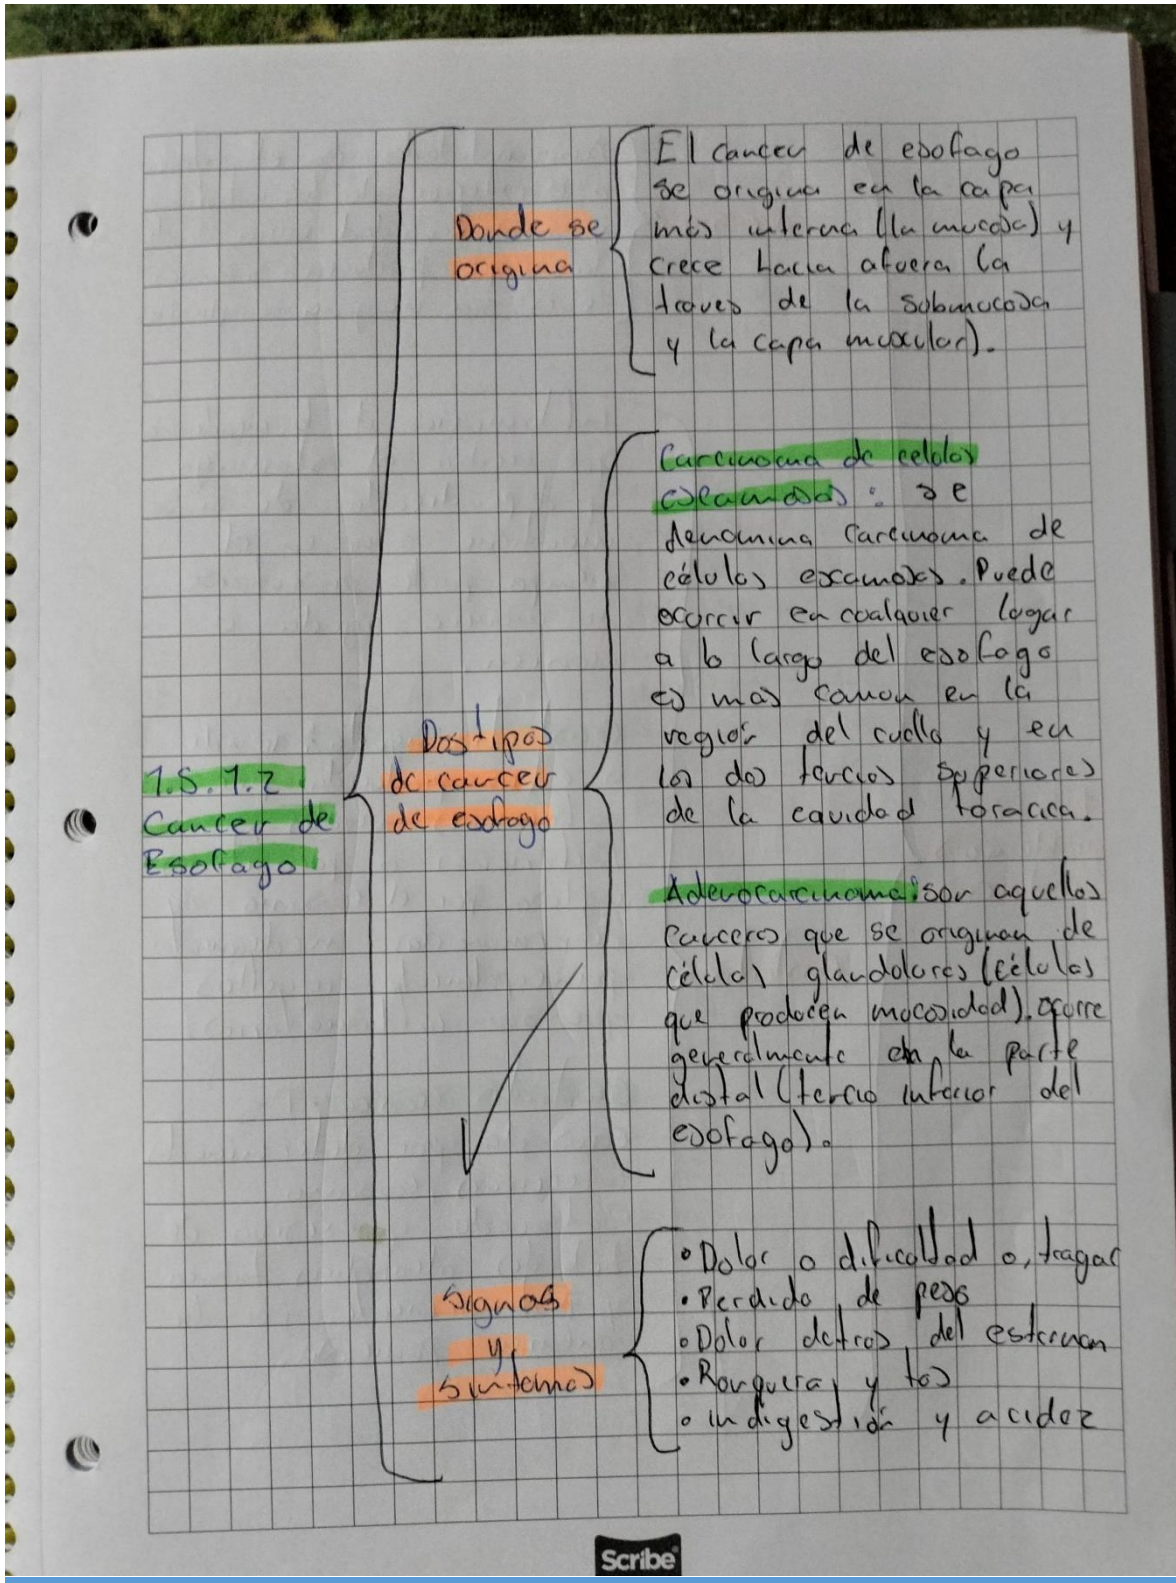 1.5.1.2
Cancer de
Esofago
Donde se
origina
El cancer de esofago
se origina en la capa
más interna (la mucosa) y
crece hacia afuera (a
traves de la submucosa
y la capa muscular).
Dos tipos
de cancer
de esofago
Carcinoma de celulas
escamosas: se
denomina carcinoma de
células escamosas. Puede
ocurrir en cualquier lugar
a lo largo del esofago
es mas comun en la
región del cuello y en
los dos tercios superiores
de la cavidad toracica.
Adenocarcinoma: son aquellos
canceres que se originan de
células glandulares (células
que producen mucosidad). ocurre
generalmente en la parte
distal (tercio inferior del
esofago).
Signos
y
Sintomas
• Dolor o dificultad o, tragar
• Perdida de peso
• Dolor detras del esternon
• Ronquera y tos
• indigestión y acidez
Scribe